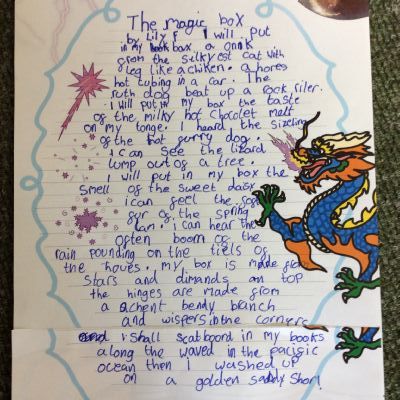 The magic box
by Lily F I will put
in my book box a oink
from the silkyest cat with
leg like a chiken. a hores
hot tubing in a car. The
ruth dog beat up a rock riler.
I will put in my box the taste
of the milky hot chocolet melt
on my tonge. I heard the sizzling
of the hot gurry dog.
i can see the lizard
lump out of a tree.
I will put in my box the
smell of the sweet daisy
i can feel the soft
gyr of the spring
lan. i can hear the
often boom of the
rain pounding on the tiels of
the houes. my box is made from
stars and dimands on top
the hinges are made from
a achent bendy branch
and wispers in the corners
and i shall scatboord in my books
along the waved in the pacific
ocean then I washed up
on a golden sandy shor!